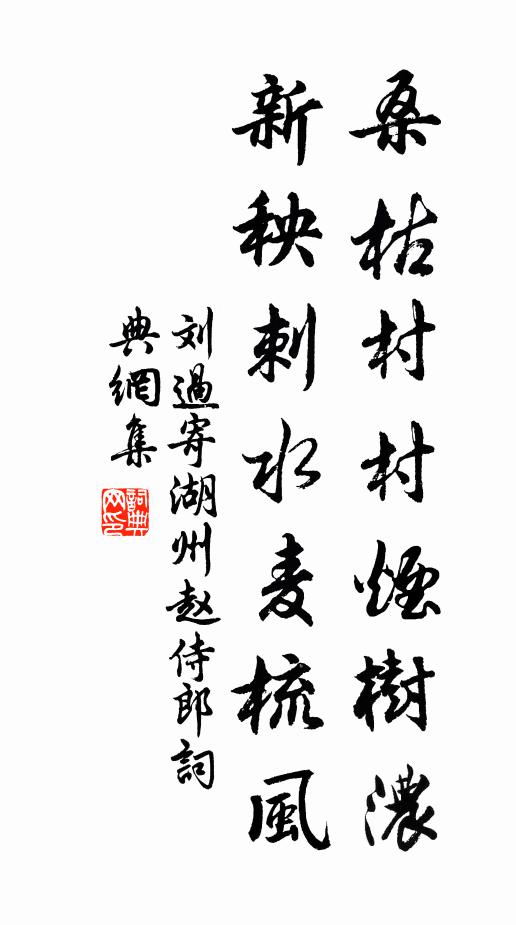 桑枯村村煙樹濃
新秧刺水麦梳風
刘過寄湖州赵侍郎詞
典網集
詞典
网印